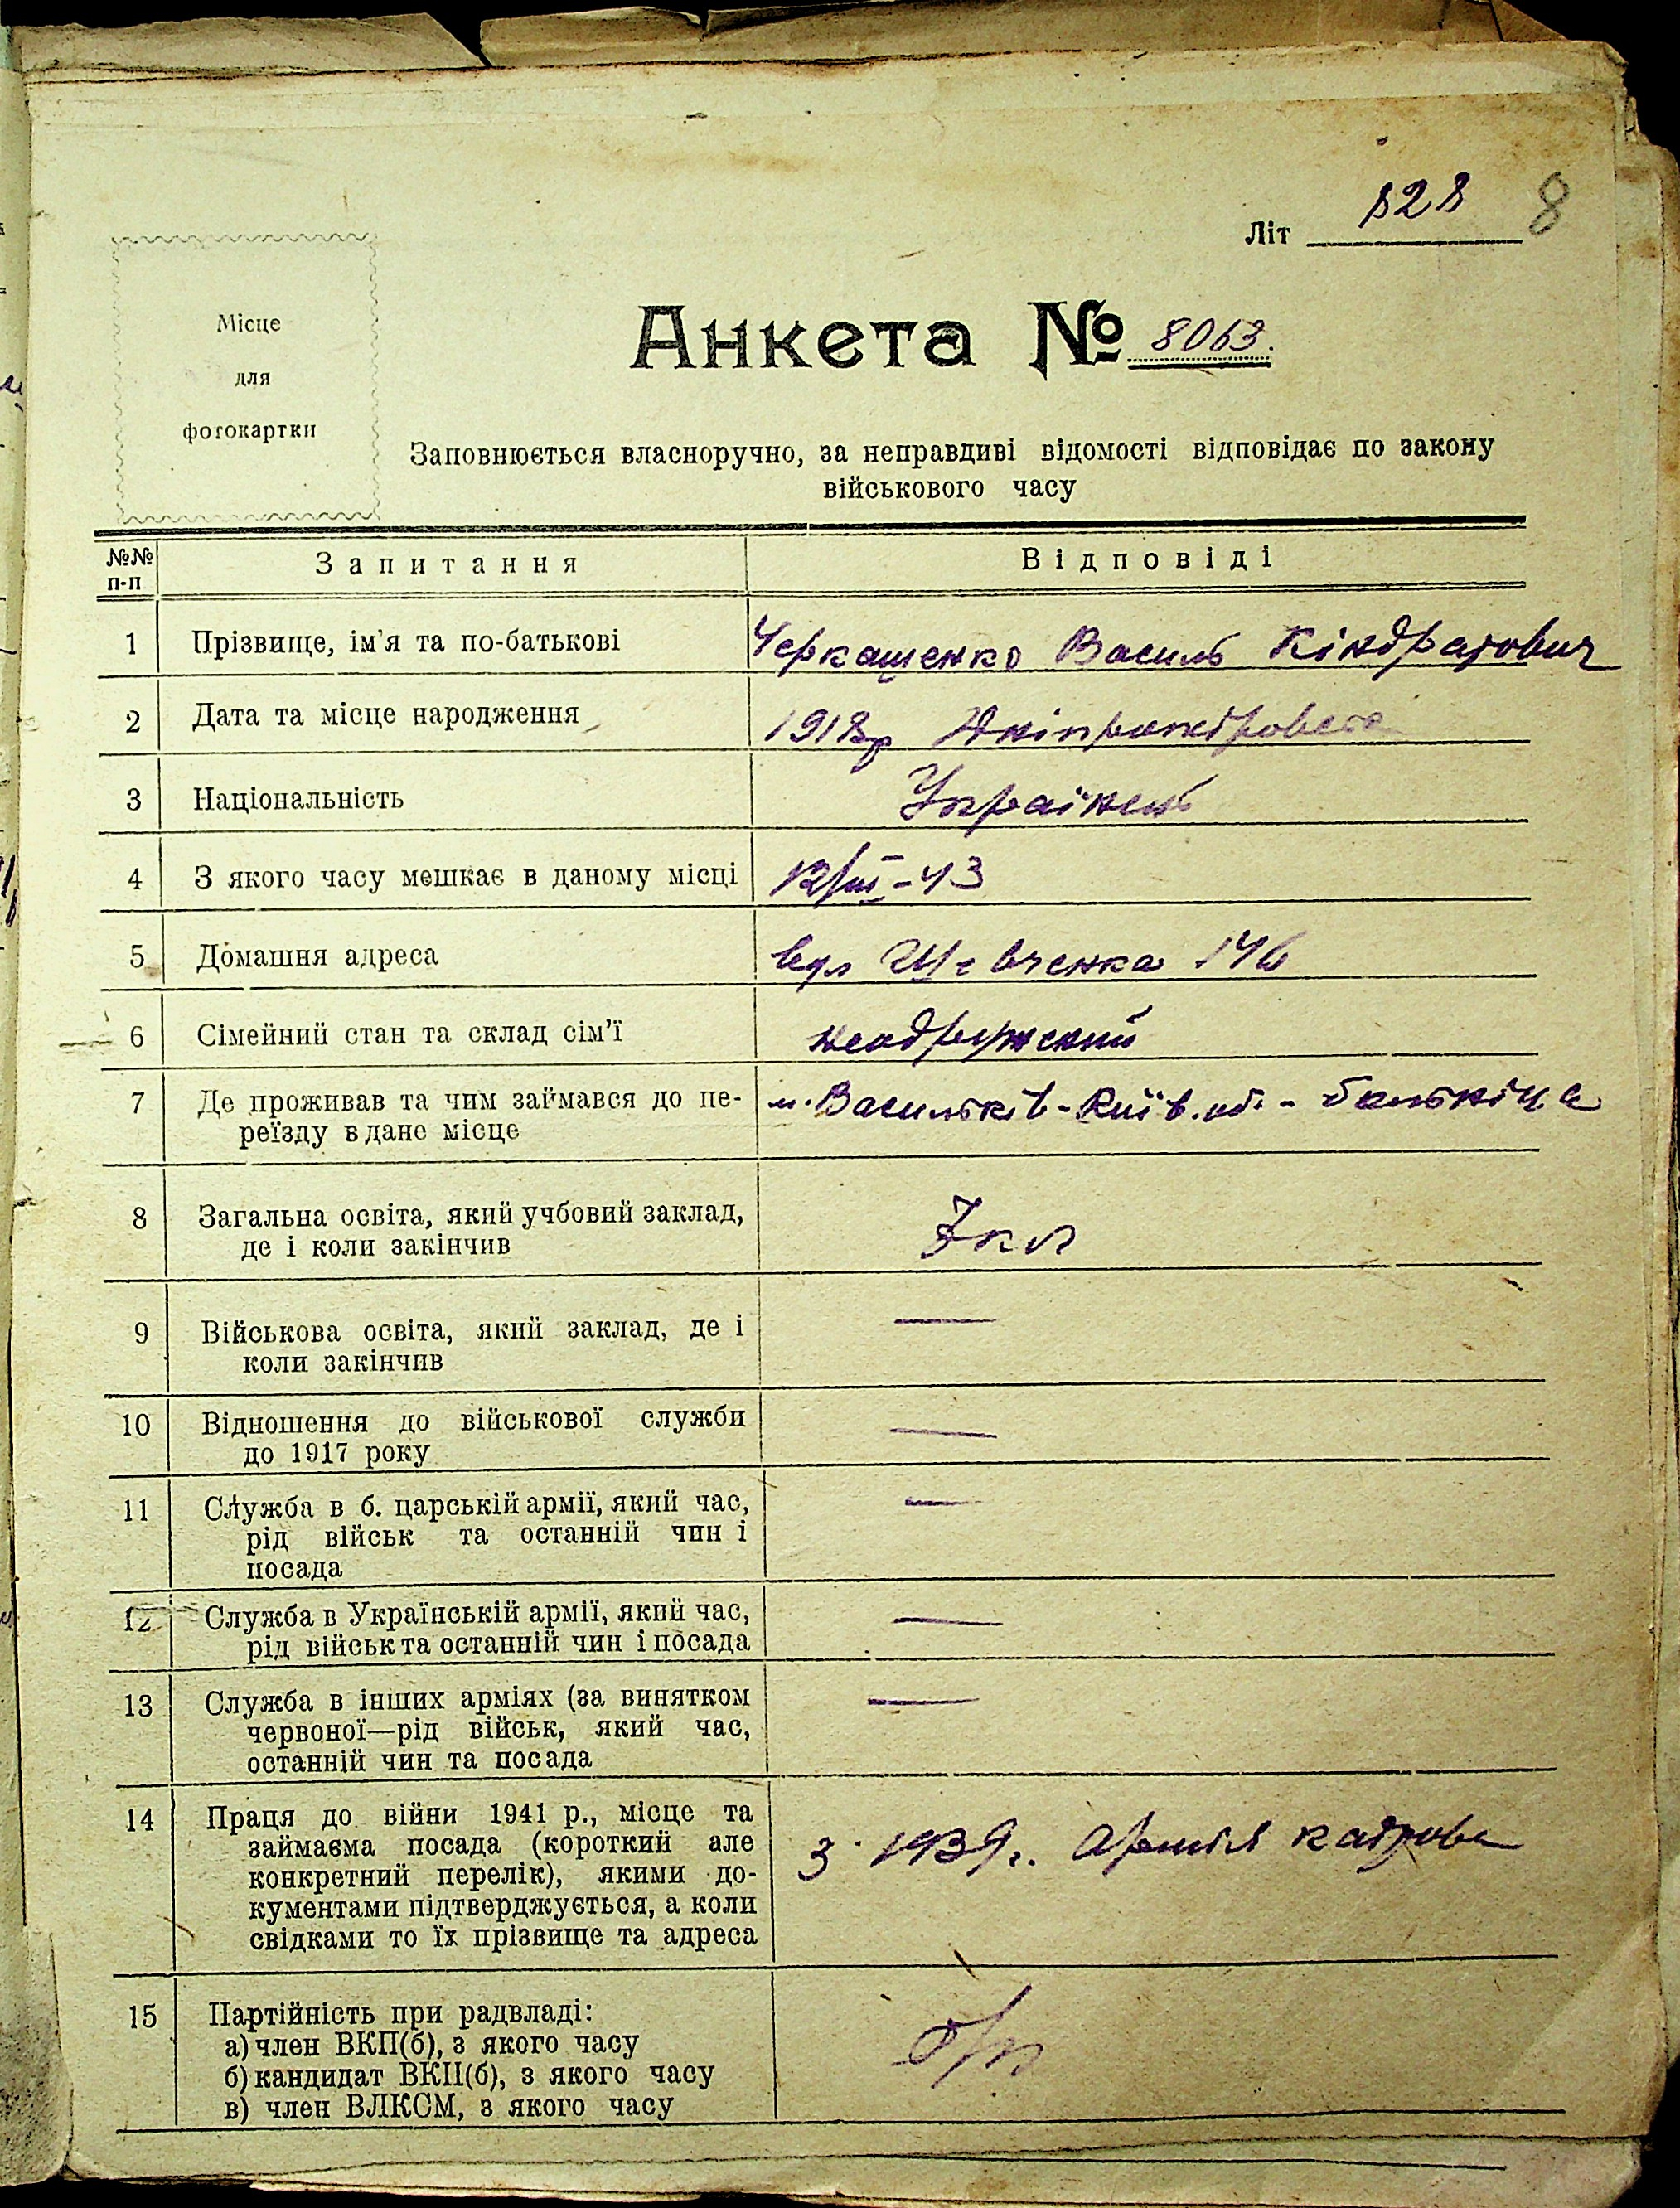 828 8
Літ
Місце
для
фотокартки
Анкета № 8063.
Заповнюється власноручно, за неправдиві відомості відповідає по закону
військового часу
№№
п-п
Запитання
Відповіді
1 Прізвище, ім'я та по-батькові Черкащенко Василь Кіндратович
2 Дата та місце народження 1918р
3 Національність Українець
4 З якого часу мешкає в даному місці 12/III-43
5 Домашня адреса вул Шевченка 146
6 Сімейний стан та склад сім'ї неодружений
7 Де проживав та чим займався до пе-
реїзду в дане місце
м. Васильків - Київ. об. -
8 Загальна освіта, який учбовий заклад,
де і коли закінчив
7 кл
9 Військова освіта, який заклад, де і
коли закінчив
—
10 Відношення до військової служби
до 1917 року
—
11 Служба в б. царській армії, який час,
рід військ та останній чин і
посада
—
12 Служба в Українській армії, який час,
рід військ та останній чин і посада
—
13 Служба в інших арміях (за винятком
червоної—рід військ, який час,
останній чин та посада
—
14 Праця до війни 1941 р., місце та
займаєма посада (короткий але
конкретний перелік), якими до-
кументами підтверджується, а коли
свідками то їх прізвище та адреса
З 1939г. Армія кадрова
15 Партійність при радвладі:
а) член ВКП(б), з якого часу
б) кандидат ВКП(б), з якого часу
в) член ВЛКСМ, з якого часу
б/п